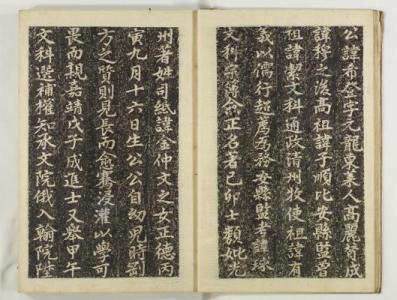 公諱希登字元龍東萊人高麗贊成
諱穆之後高祖諱子順比安縣監曾
祖諱絜文科通政清州牧使祖諱有
義以儒行超薦爲務安縣監考諱球
文科宗簿僉正名著己卯士類妣光
州著姓司紙諱金仲文之女正德丙
寅九月十六日生公公自幼兒時剛
方之質則見長而愈篤浸灌以學可
畏而親嘉靖戊子成進士又舉甲午
文科選補權知承文院俄入翰院陞